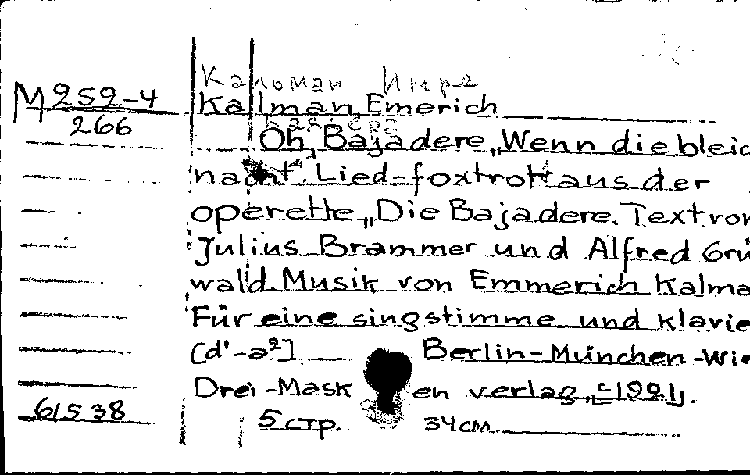 Кальман Имре
М 252-4 Kalman, Emerich
266
Oh, Bajadere „Wenn die bleic
nacht". Lied-foxtrott aus der
operette „Die Bajadere. Text von
Julius Brammer und Alfred Grü
wald. Musik von Emmerich Kalma
Für eine singstimme und klavie
[d'-a²] Berlin-München-Wie
Drei-Mask en verlag, c1921.
61538
5 стр. 34 см